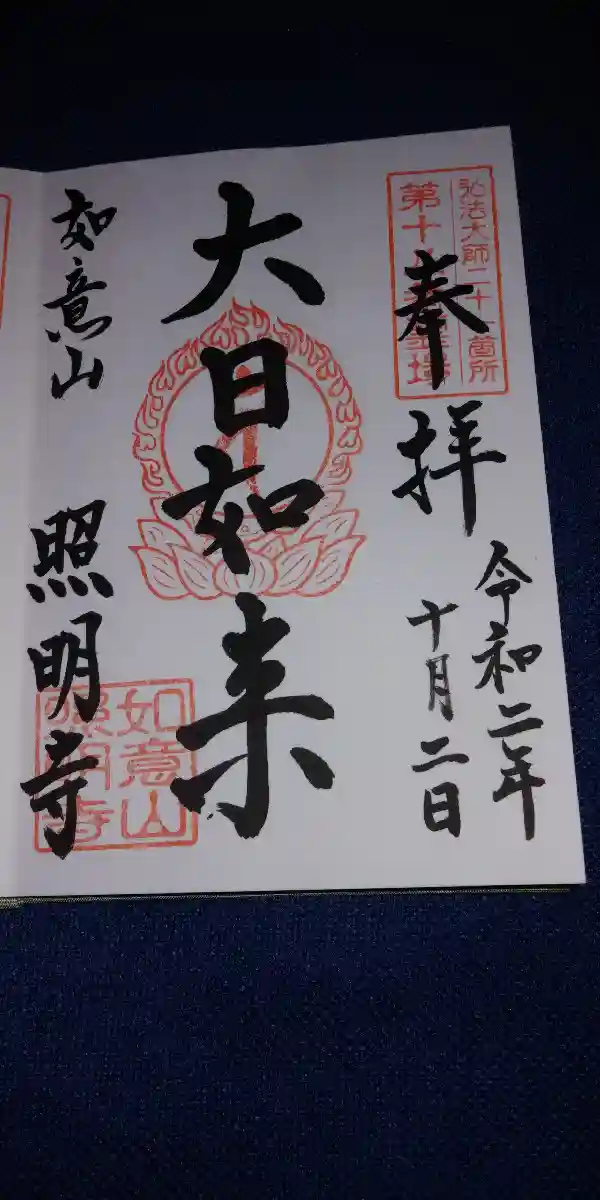 弘法大師二十一箇所
第十 霊場
奉拝
令和二年
十月二日
大日如来
如意山
照明寺
如意山
照明寺